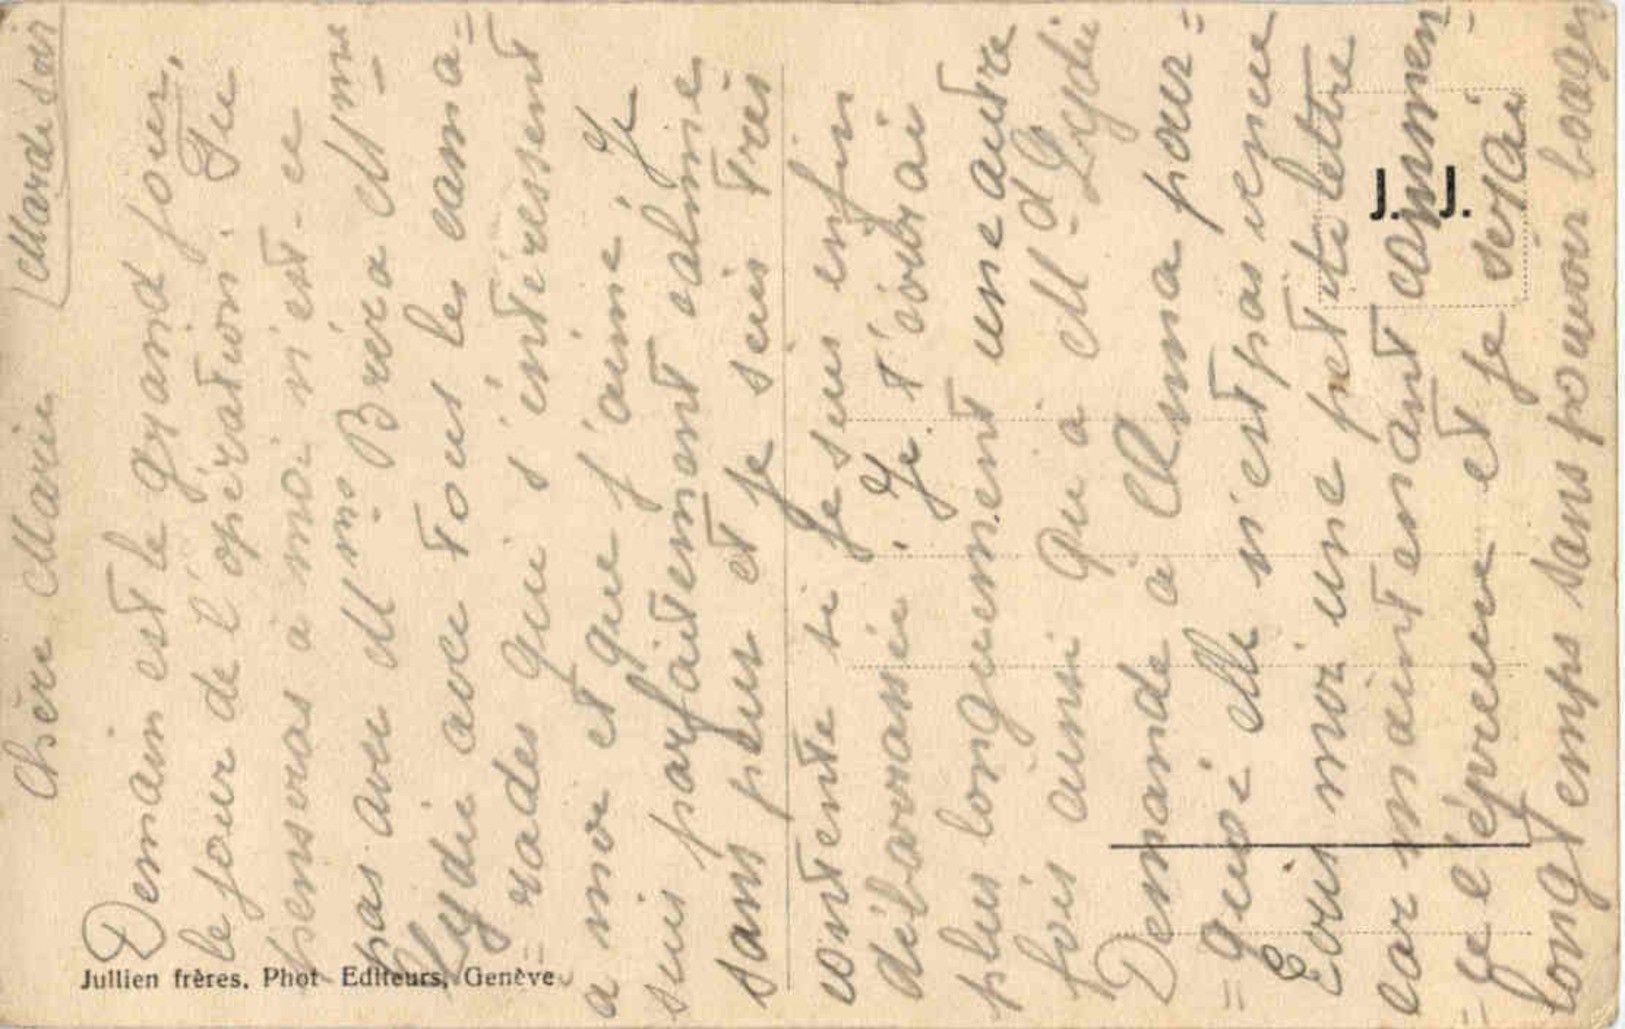 Mardi soir
Chère Marie
Demain est le grand jour,
le jour de l'opération. Tu
penseras à moi n'est-ce
pas avec Mme Brera Mme
Lydie avec tous les cama=
=rades qui s'intéressent
à moi et que j'aime. Je
suis parfaitement calme
sans peur et je suis très
contente si je suis enfin
débarrassée. Je t'écrirai
plus longuement une autre
fois ainsi qu'à Md Lydie
Demande à Emma pour=
=quoi elle n'est pas venue
Ecris moi une petite lettre
car maintenant commen=
=ce l'épreuve et je serai
longtemps sans pouvoir bouger
J. J.
Jullien frères, Phot Editeurs, Genève